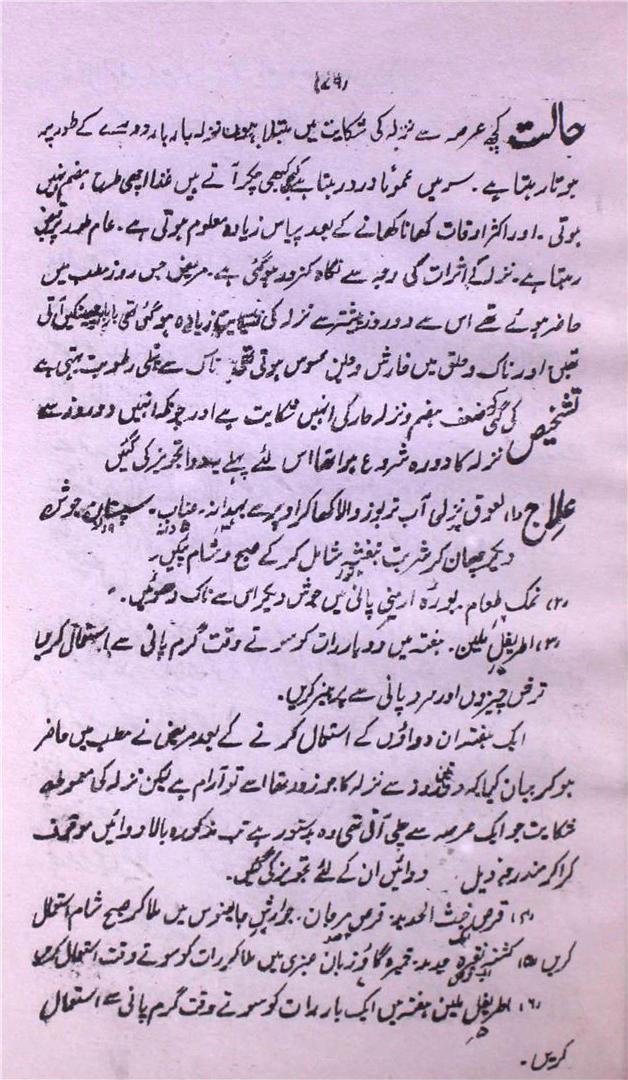 (۷۹)
حالت کچھ عرصہ سے نزلہ کی شکایت میں مبتلا ہوں نزلہ بار بار دورے کے طور پر
ہوتا رہتا ہے۔ سر میں عموماً درد رہتا ہے کبھی کبھی چکر آتے ہیں غذا اچھی طرح ہضم نہیں
ہوتی۔ اور اکثر اوقات کھانا کھانے کے بعد پیاس زیادہ معلوم ہوتی ہے۔ عام طور پر قبض
رہتا ہے۔ نزلہ کے اثرات کی وجہ سے نگاہ کمزور ہو گئی ہے۔ مریض جس روز مطب میں
حاضر ہوئے تھے اس سے دو روز پیشتر سے نزلہ کی شکایت زیادہ ہو گئی تھی بار بار چھینکیں آتی
تھیں اور ناک و حلق میں خارش و جلن محسوس ہوتی تھی ناک سے پتلی رطوبت بہتی ہے
تشخیص کی گئی کہ ضعف ہضم و نزلہ حار کی انہیں شکایت ہے اور چونکہ انہیں دو روز سے
نزلہ کا دورہ شروع ہوا تھا اس لئے پہلے یہ دوا تجویز کی گئیں
علاج (۱) لعوق نزلی آب تربوز والا کھا کر اوپر سے بہدانہ۔ عناب۔ سپستان جوش
دیکر چھان کر شربت بنفشہ شامل کر کے صبح و شام پئیں۔
(۲) نمک طعام۔ بورہ ارمنی پانی میں جوش دیکر اس سے ناک دھوئیں۔
(۳) اطریفل ملین۔ ہفتہ میں دو بار رات کو سوتے وقت گرم پانی سے استعمال کریں
ترش چیزوں اور سرد پانی سے پرہیز کریں۔
ایک ہفتہ ان دواؤں کے استعمال کرنے کے بعد مریض نے مطب میں حاضر
ہو کر بیان کیا کہ دو روز سے نزلہ کا جو زور تھا اسے تو آرام ہے لیکن نزلہ کی
شکایت جو ایک عرصہ سے چلی آتی تھی وہ بدستور ہے تب مذکورہ بالا دوائیں موقوف
کرا کر مندرجہ ذیل دوائیں ان کے لئے تجویز کی گئیں۔
(۴) قرص خبث الحدید۔ قرص مرجان۔ جوارش جالینوس میں ملا کر صبح شام استعمال
کریں (۵) کشتہ نقرہ جدید۔ خمیرہ گاؤزبان عنبری میں ملا کر رات کو سوتے وقت استعمال کریں
(۶) اطریفل ملین ہفتہ میں ایک بار رات کو سوتے وقت گرم پانی سے استعمال
کریں۔